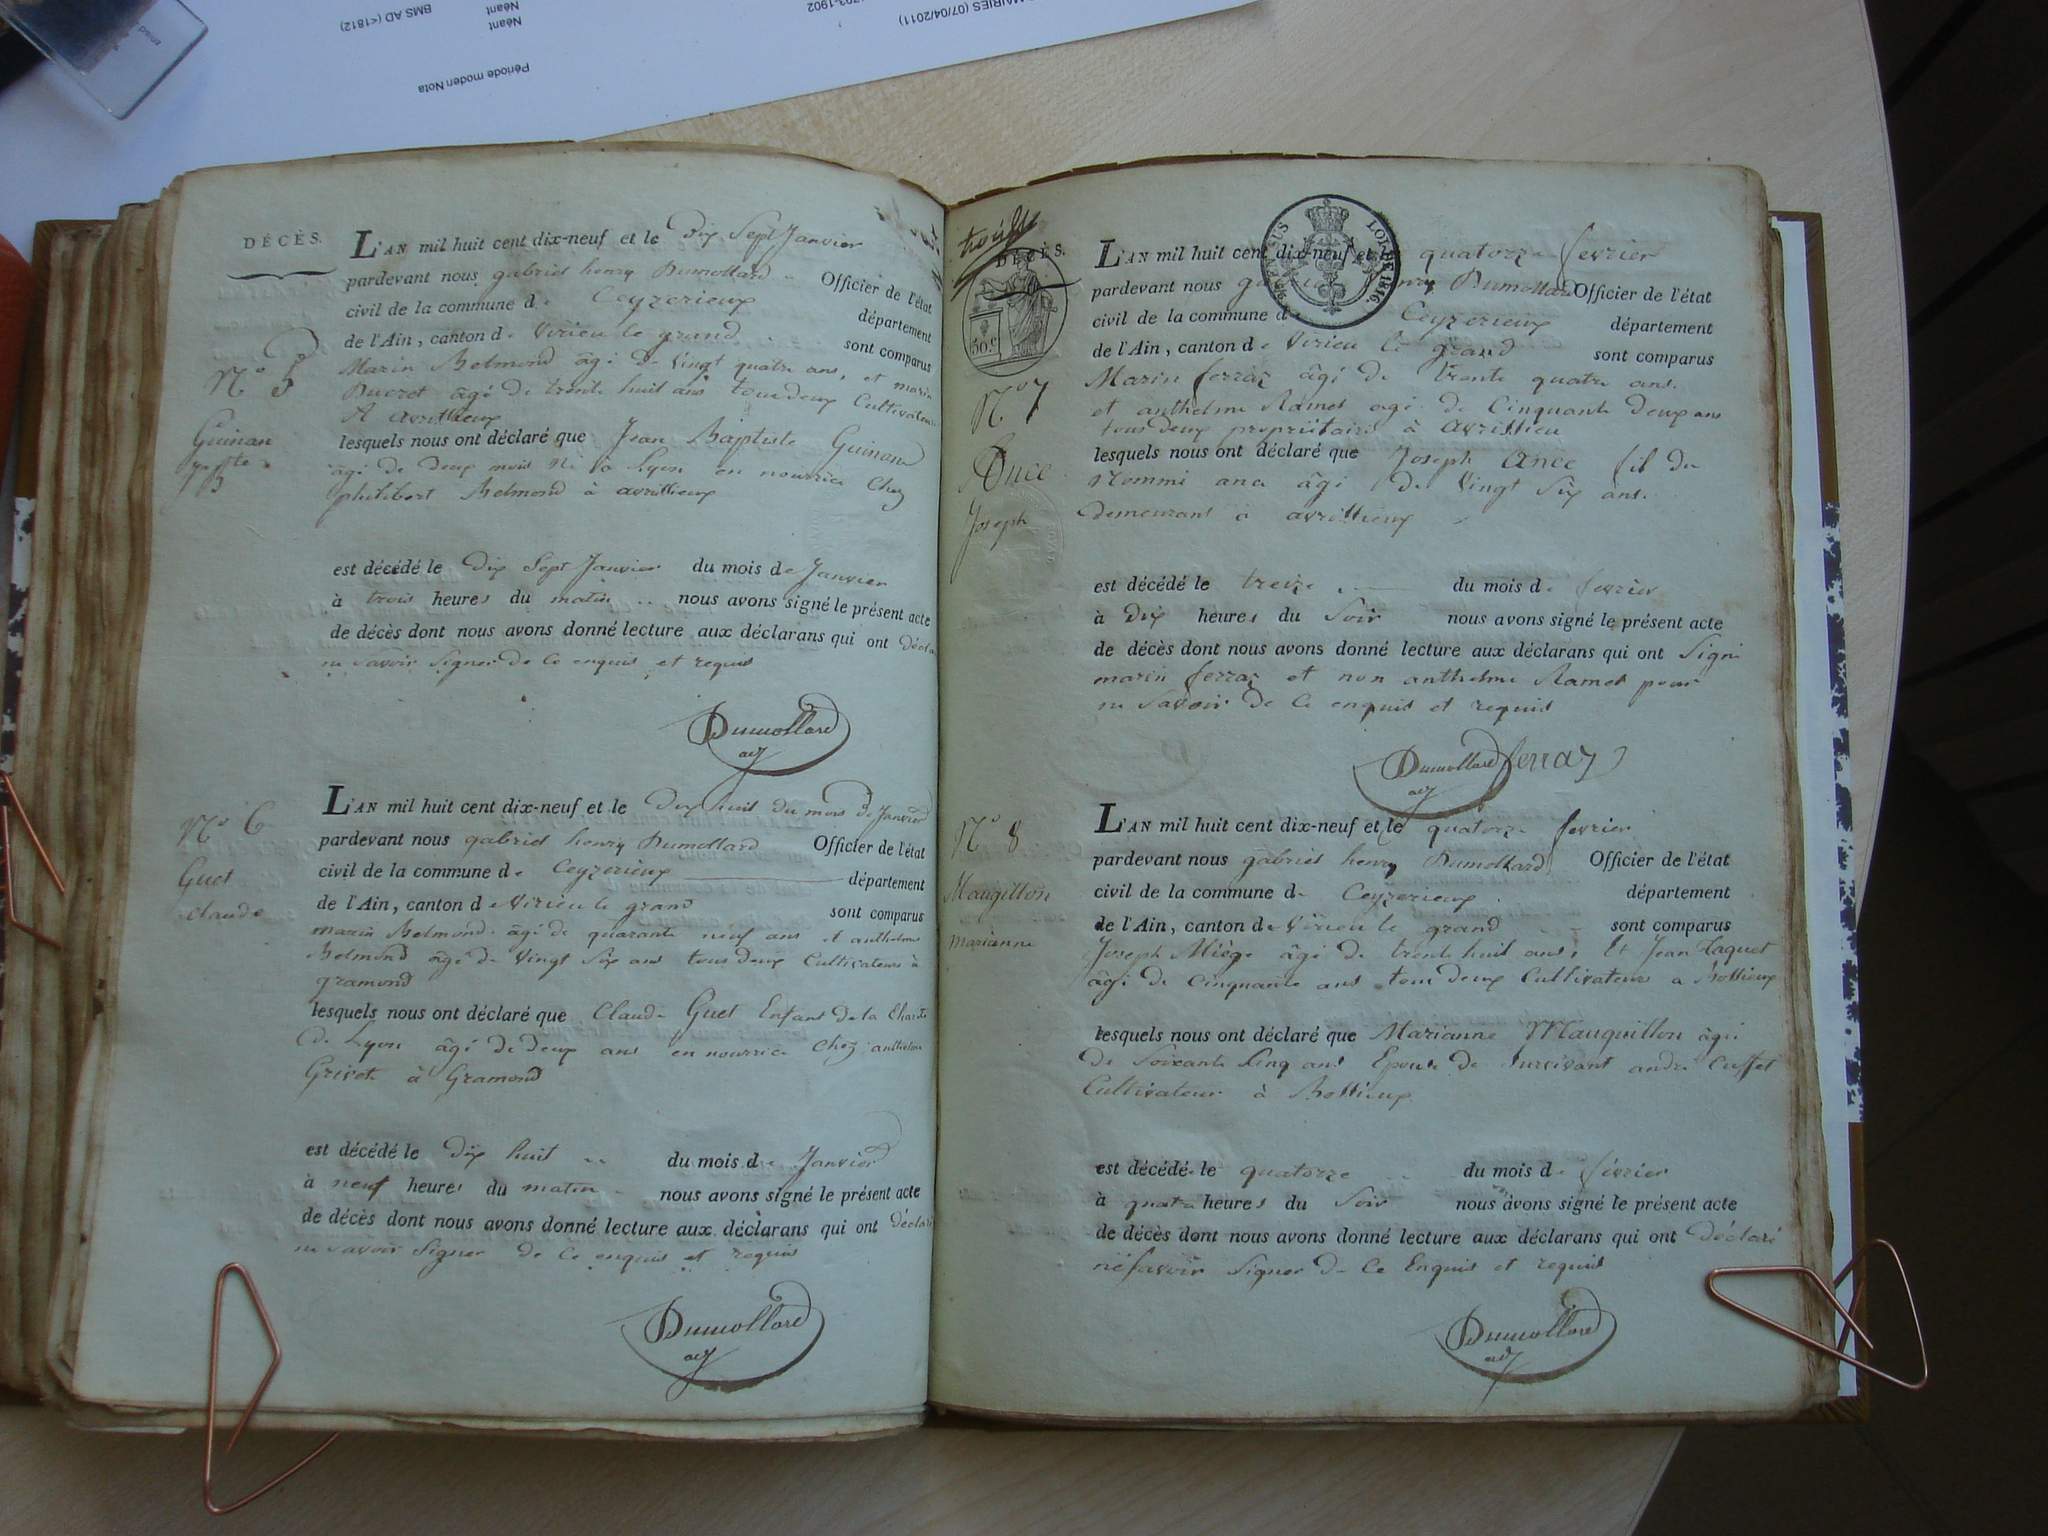 MAIRIES (07/04/2011)
1793-1902
Néant
Néant
BMS AD (<1812)
Période moden Nota
DÉCÈS.
L'AN mil huit cent dix-neuf et le Dix Sept Janvier
pardevant nous gabriel henry Dumollard Officier de l'état
civil de la commune de Ceyzerieux département
de l'Ain, canton de Virieu le grand sont comparus
Marin Belmond âgé de Vingt quatre ans, et marin
Ducret âgé de trente huit ans tous deux Cultivateurs
A avrissieux
N° 5
Guinan
J. Bte
lesquels nous ont déclaré que Jean Baptiste Guinand
âgé de deux mois né à Lyon en nourrice Chez
philibert Belmond à avrissieux
est décédé le Dix Sept Janvier du mois de Janvier
à trois heures du matin nous avons signé le présent acte
de décès dont nous avons donné lecture aux déclarans qui ont décla
ne savoir Signer de Ce enquis et requis
Dumollard
adj
N° 6
Guet
claude
L'AN mil huit cent dix-neuf et le Dix huit du mois de Janvier
pardevant nous gabriel henry Dumollard Officier de l'état
civil de la commune de Ceyzerieux département
de l'Ain, canton de Virieu le grand sont comparus
marin Belmond âgé de quarante neuf ans et anthelme
Belmond âgé de Vingt Six ans tous deux Cultivateurs à
gramond
lesquels nous ont déclaré que Claude Guet Enfant de la Charité
de Lyon âgé de deux ans en nourrice Chez anthelme
Grivet à Gramond
est décédé le dix huit du mois de Janvier
à neuf heures du matin nous avons signé le présent acte
de décès dont nous avons donné lecture aux déclarans qui ont déclaré
ne savoir Signer de Ce enquis et requis
Dumollard
adj
DÉCÈS.
50 c
LOI DE 1816.
L'AN mil huit cent dix-neuf et le quatorze fevrier
pardevant nous Dumollard Officier de l'état
civil de la commune d Ceyzerieux département
de l'Ain, canton de Virieu le grand sont comparus
Marin ferraz âgé de trente quatre ans.
et anthelme Ramel agé de Cinquante deux ans
tous deux propriétaires à avrissieu
N° 7
Ance
Joseph
lesquels nous ont déclaré que Joseph Ance fil du
Nommé ance âgé de Vingt Six ans.
demeurant à avrissieux
est décédé le treize du mois de fevrier
à Dix heures du Soir nous avons signé le présent acte
de décès dont nous avons donné lecture aux déclarans qui ont Signé
marin ferraz et non anthelme Ramel pour
ne Savoir de Ce enquis et requis
Dumollard ferraz
adj
N° 8
Maugillon
marianne
L'AN mil huit cent dix-neuf et le quatorze fevrier
pardevant nous gabriel henry Dumollard Officier de l'état
civil de la commune de Ceyzerieux département
de l'Ain, canton de Virieu le grand sont comparus
Joseph Miège âgé de trente huit ans, Et Jean Taquet
âgé de Cinquante ans tous deux Cultivateurs a Bossieux
lesquels nous ont déclaré que Marianne Mauguillon âgée
de Soixante Cinq ans Epouse de Survivant andré Cuffet
Cultivateur à Bossieux
est décédé le quatorze du mois de février
à quatre heures du Soir nous avons signé le présent acte
de décès dont nous avons donné lecture aux déclarans qui ont déclaré
ne savoir Signer de Ce Enquis et requis
Dumollard
adj